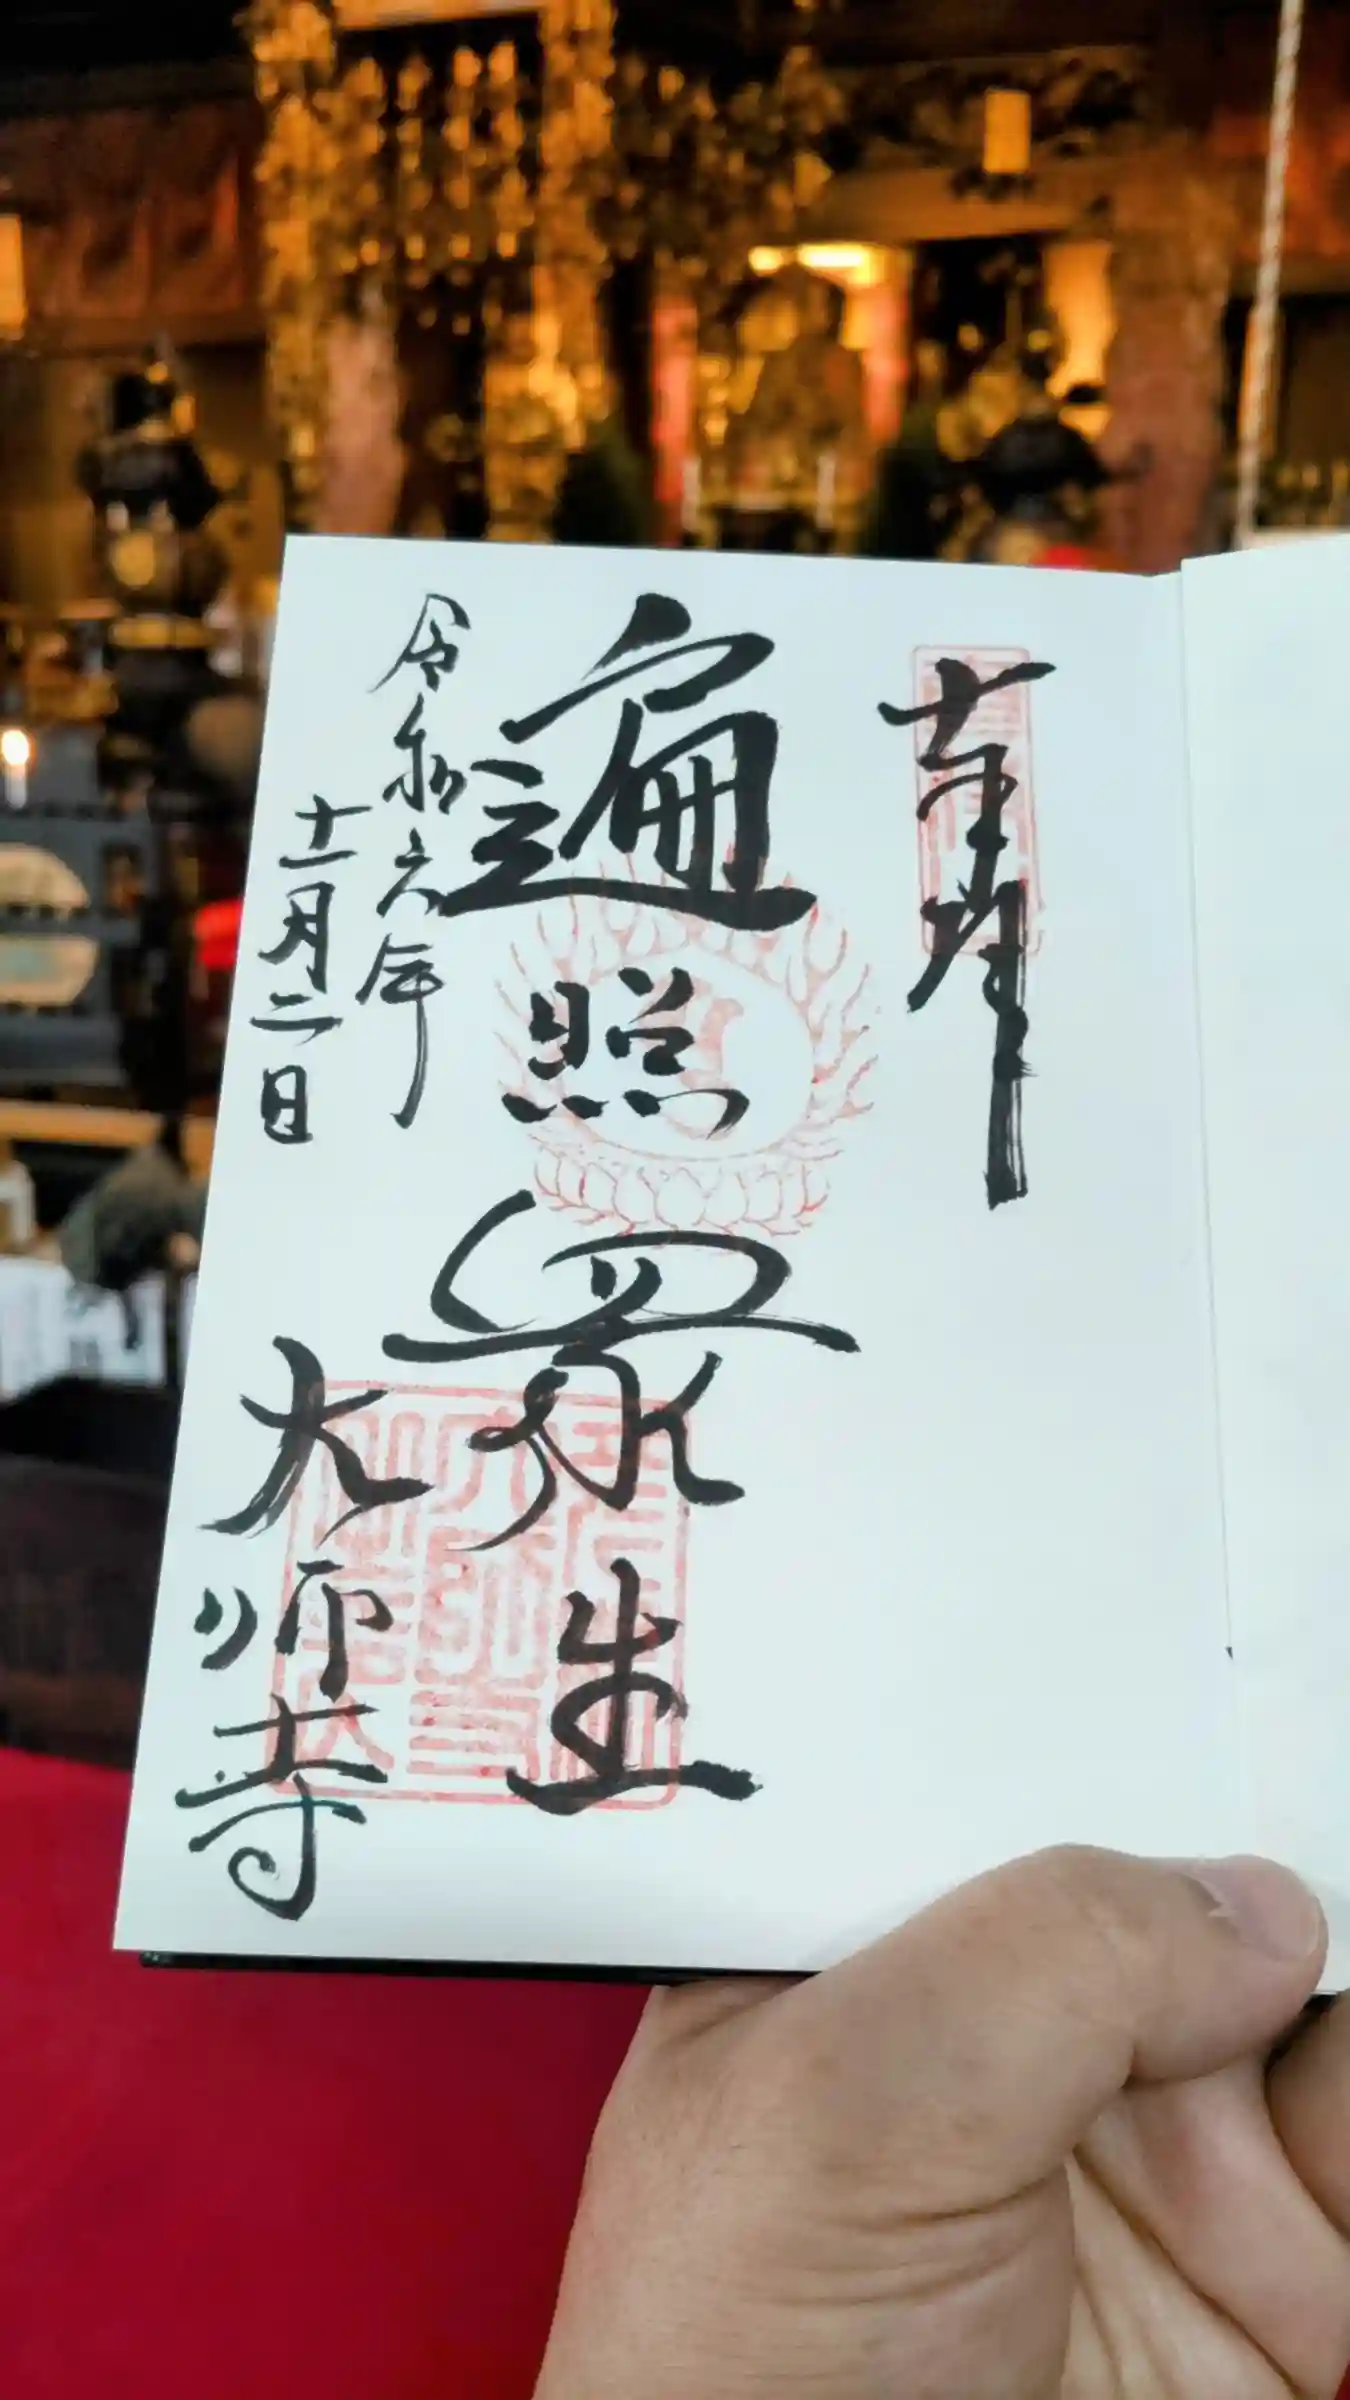 奉拝
遍照衆生
令和六年
十一月二日
大師寺